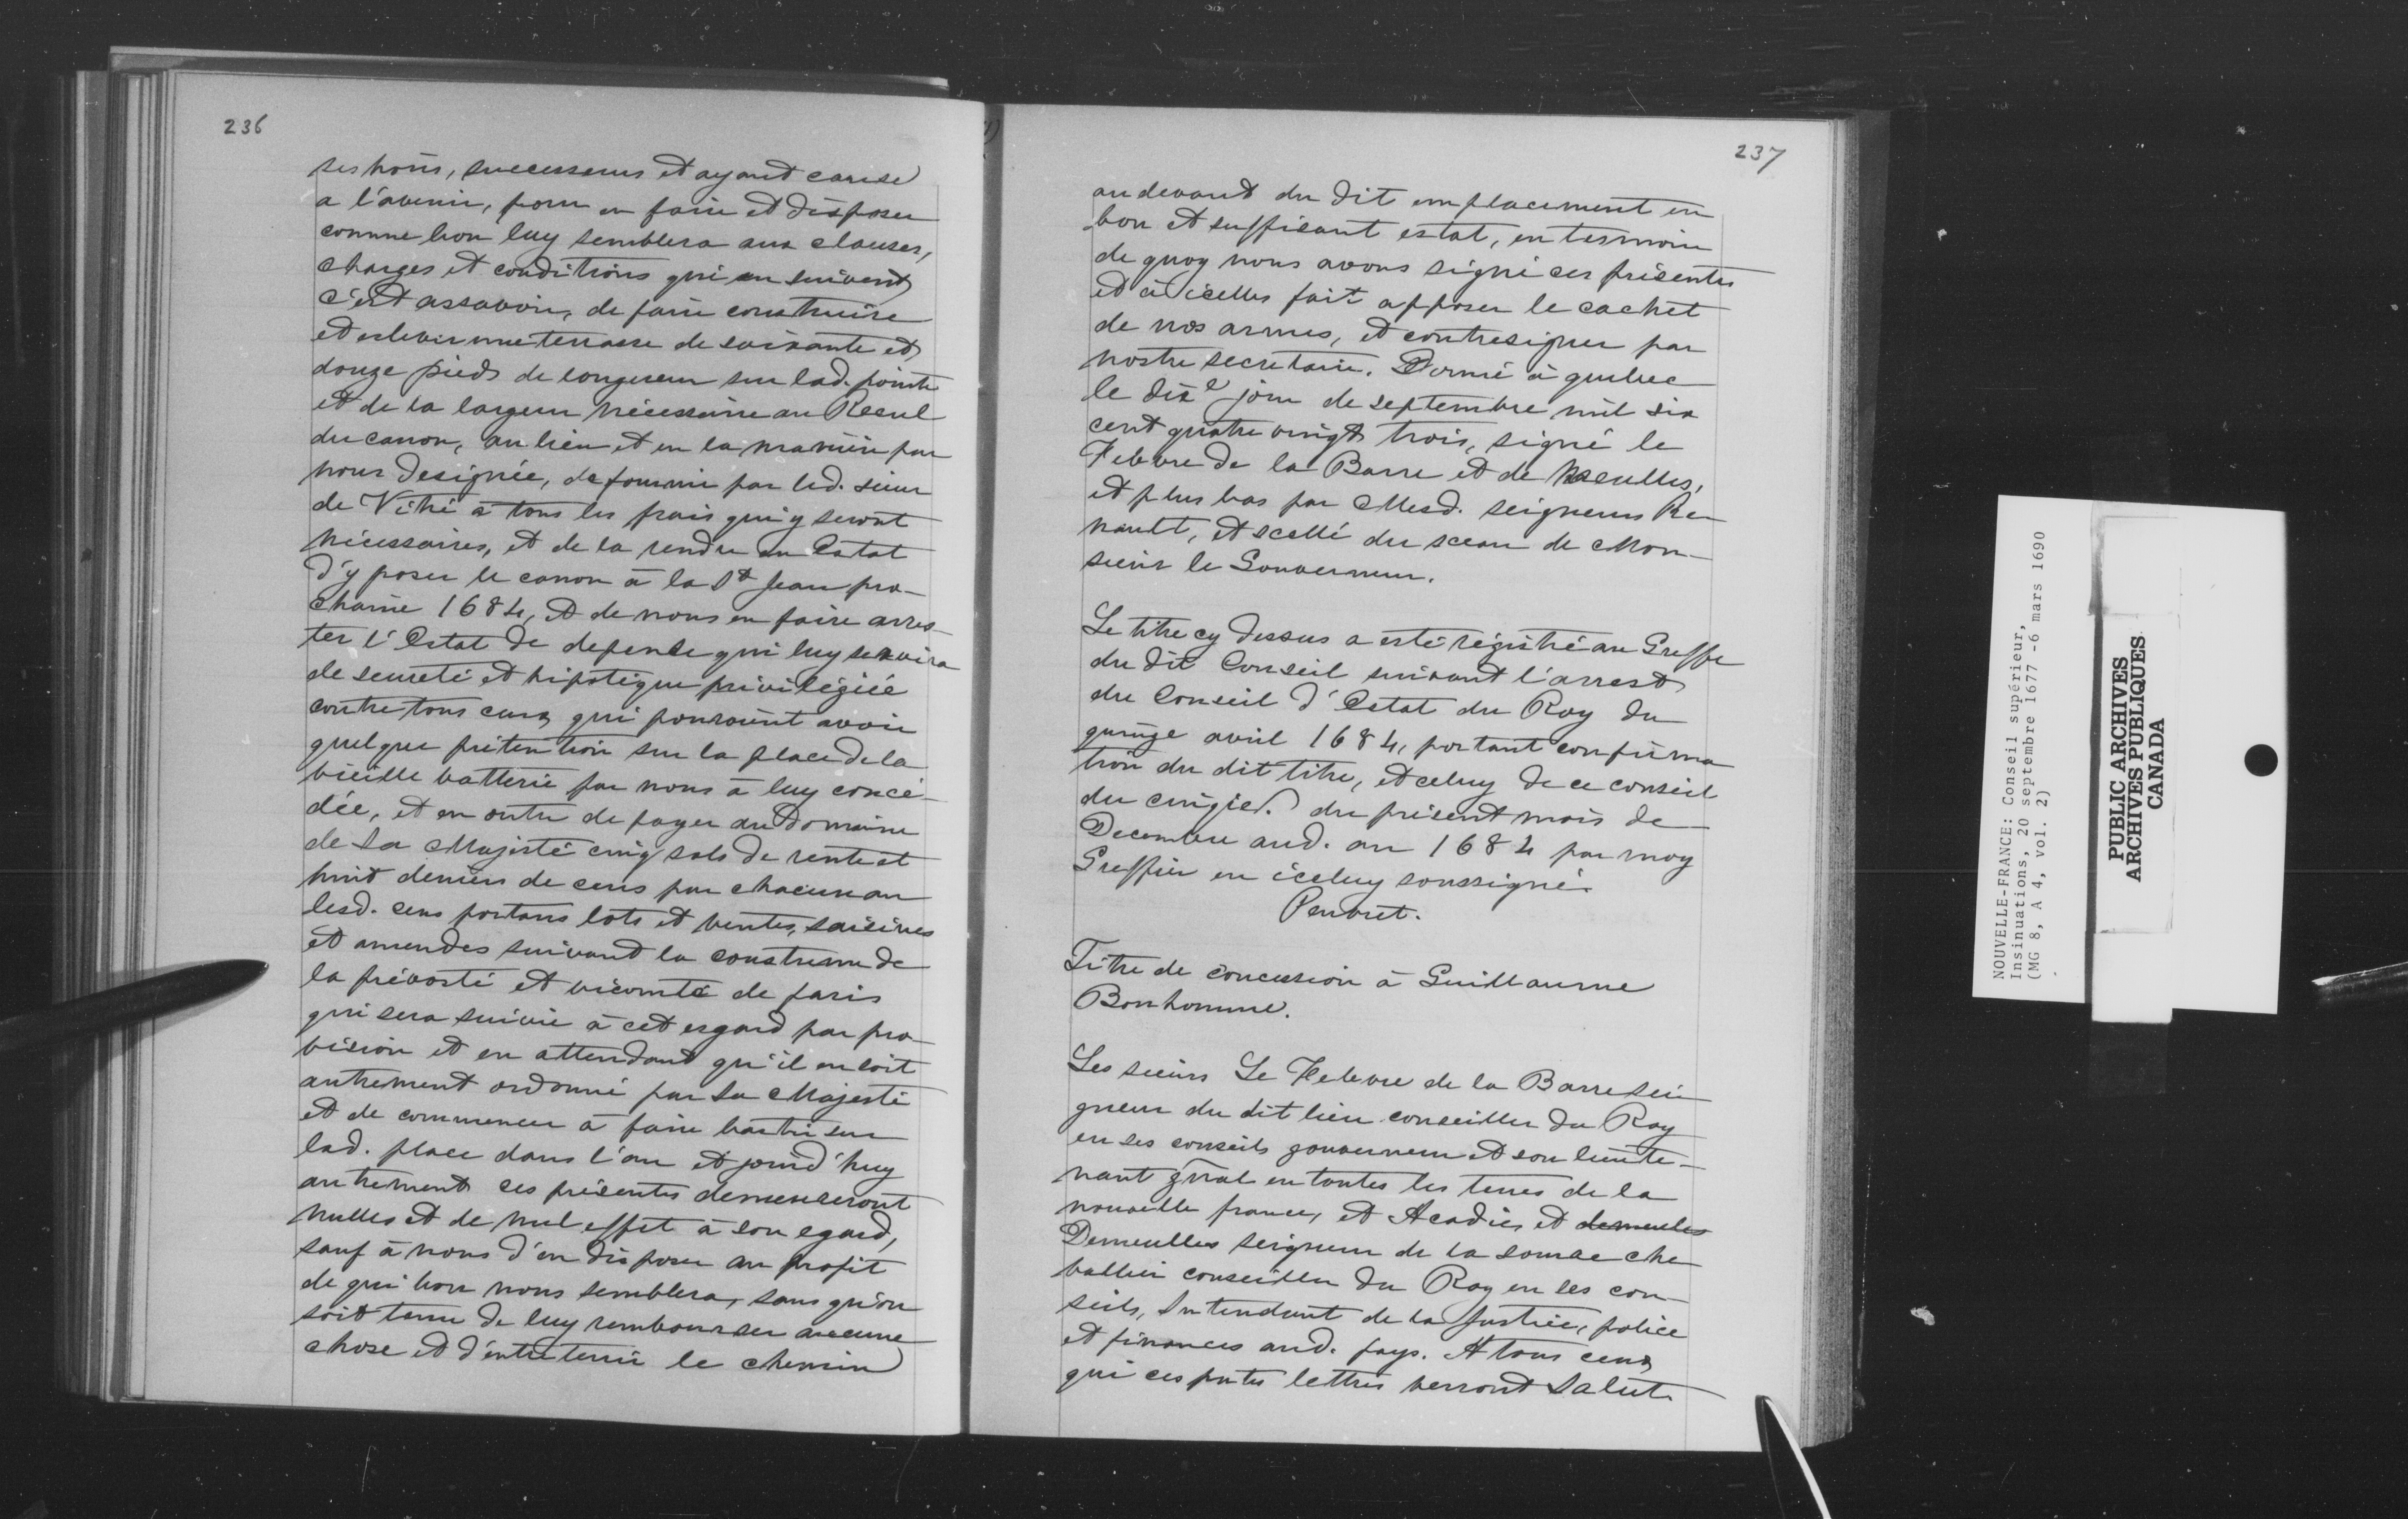 236
ses hoirs, successeurs et ayant cause
a l'avenir, pour en faire et disposer
comme bon luy semblera aux clauses,
charges et conditions qui en suivent
c'est assavoir, de faire construire
et eslever une terrasse de soixante et
douze pieds de longueur sur lad. pointe
et de la largeur nécessaire au Recul
du canon, au lieu et en la manière par
nous designée, de fournir par led. sieur
de Vitré à tous les frais qui y seront
nécessaires, et de la rendre en Estat
d'y poser le canon à la St Jean pro-
chaine 1684, et de nous en faire arres-
ter l'Estat de depense qui luy servira
de seureté et hipotèque privilégiée
contre tous ceux qui pouroient avoir
quelque prétention sur la place de la
vieille batterie par nous à luy concé-
dée, et en outre de payer au Domaine
de Sa Majesté cinq sols de rente et
huit deniers de cens par chacun an
lesd. cens portans lots et ventes, saisines
et amendes suivant la coustume de
la prévosté et vicomté de paris
qui sera suivie à cet esgard par pro-
vision et en attendant qu'il en soit
autrement ordonné par Sa Majesté
et de commencer à faire bastir sur
lad. place dans l'an et jourd'huy
autrement ces présentes demeureront
nulles et de nul effet à son egard,
sauf à nous d'en disposer au profit
de qui bon nous semblera, sans qu'on
soit tenu de luy rembourser aucune
chose et d'entretenir le chemin
237
au devant du dit emplacement en
bon et suffisant estat, en tesmoin
de quoy nous avons signé ces présentes
et à icelles fait apposer le cachet
de nos armes, et contresigner par
nostre secretaire. Donné à quebec
le dixe jour de septembre mil six
cent quatre vingt trois, signé le
Febvre de la Barre et de Meulles,
et plus bas par Mesd. seigneurs Re-
nault, et scellé du sceau de Mon-
sieur le Gouverneur.
Le titre cy dessus a esté régistré au Greffe
du dit Conseil suivant l'arrest
du Conseil d'Estat du Roy du
quinze avril 1684, portant confirma-
tion du dit titre, et celuy de ce conseil
du cinqie. du présent mois de
Decembre aud. an 1684 par moy
Greffier en iceluy soussigné.
Peuvret.
Titre de concession à Guillaume
Bonhomme.
Les sieurs Le Febvre de la Barre sei-
gneur du dit lieu conseiller du Roy
en ses conseils gouverneur et son lieute-
nant gñral en toutes les terres de la
nouvelle france, et Acadie, et demeules
Demeulles seigneur de la source che-
vallier conseiller du Roy en ses con-
seils, Intendant de la Justice, police
et finances aud. pays. A tous ceux
qui ces pntes lettres verront Salut.
NOUVELLE-FRANCE: Conseil supérieur,
Insinuations, 20 septembre 1677 -6 mars 1690
(MG 8, A 4, vol. 2)
PUBLIC ARCHIVES
ARCHIVES PUBLIQUES
CANADA